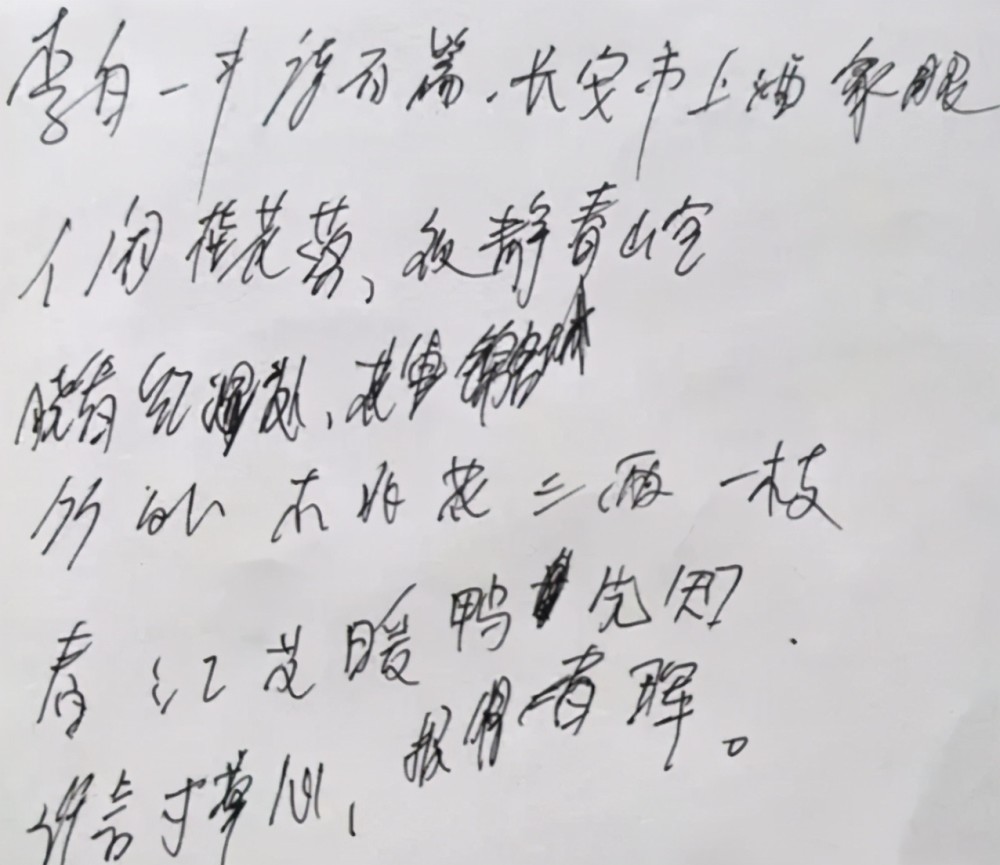 李白一斗诗百篇.长安市上酒家眠
人闲桂花落、夜静春山空
晓看红湿处,花重锦官城
竹外 花三两一枝
春江 暖鸭先知.
谁言寸草心,报得春晖。